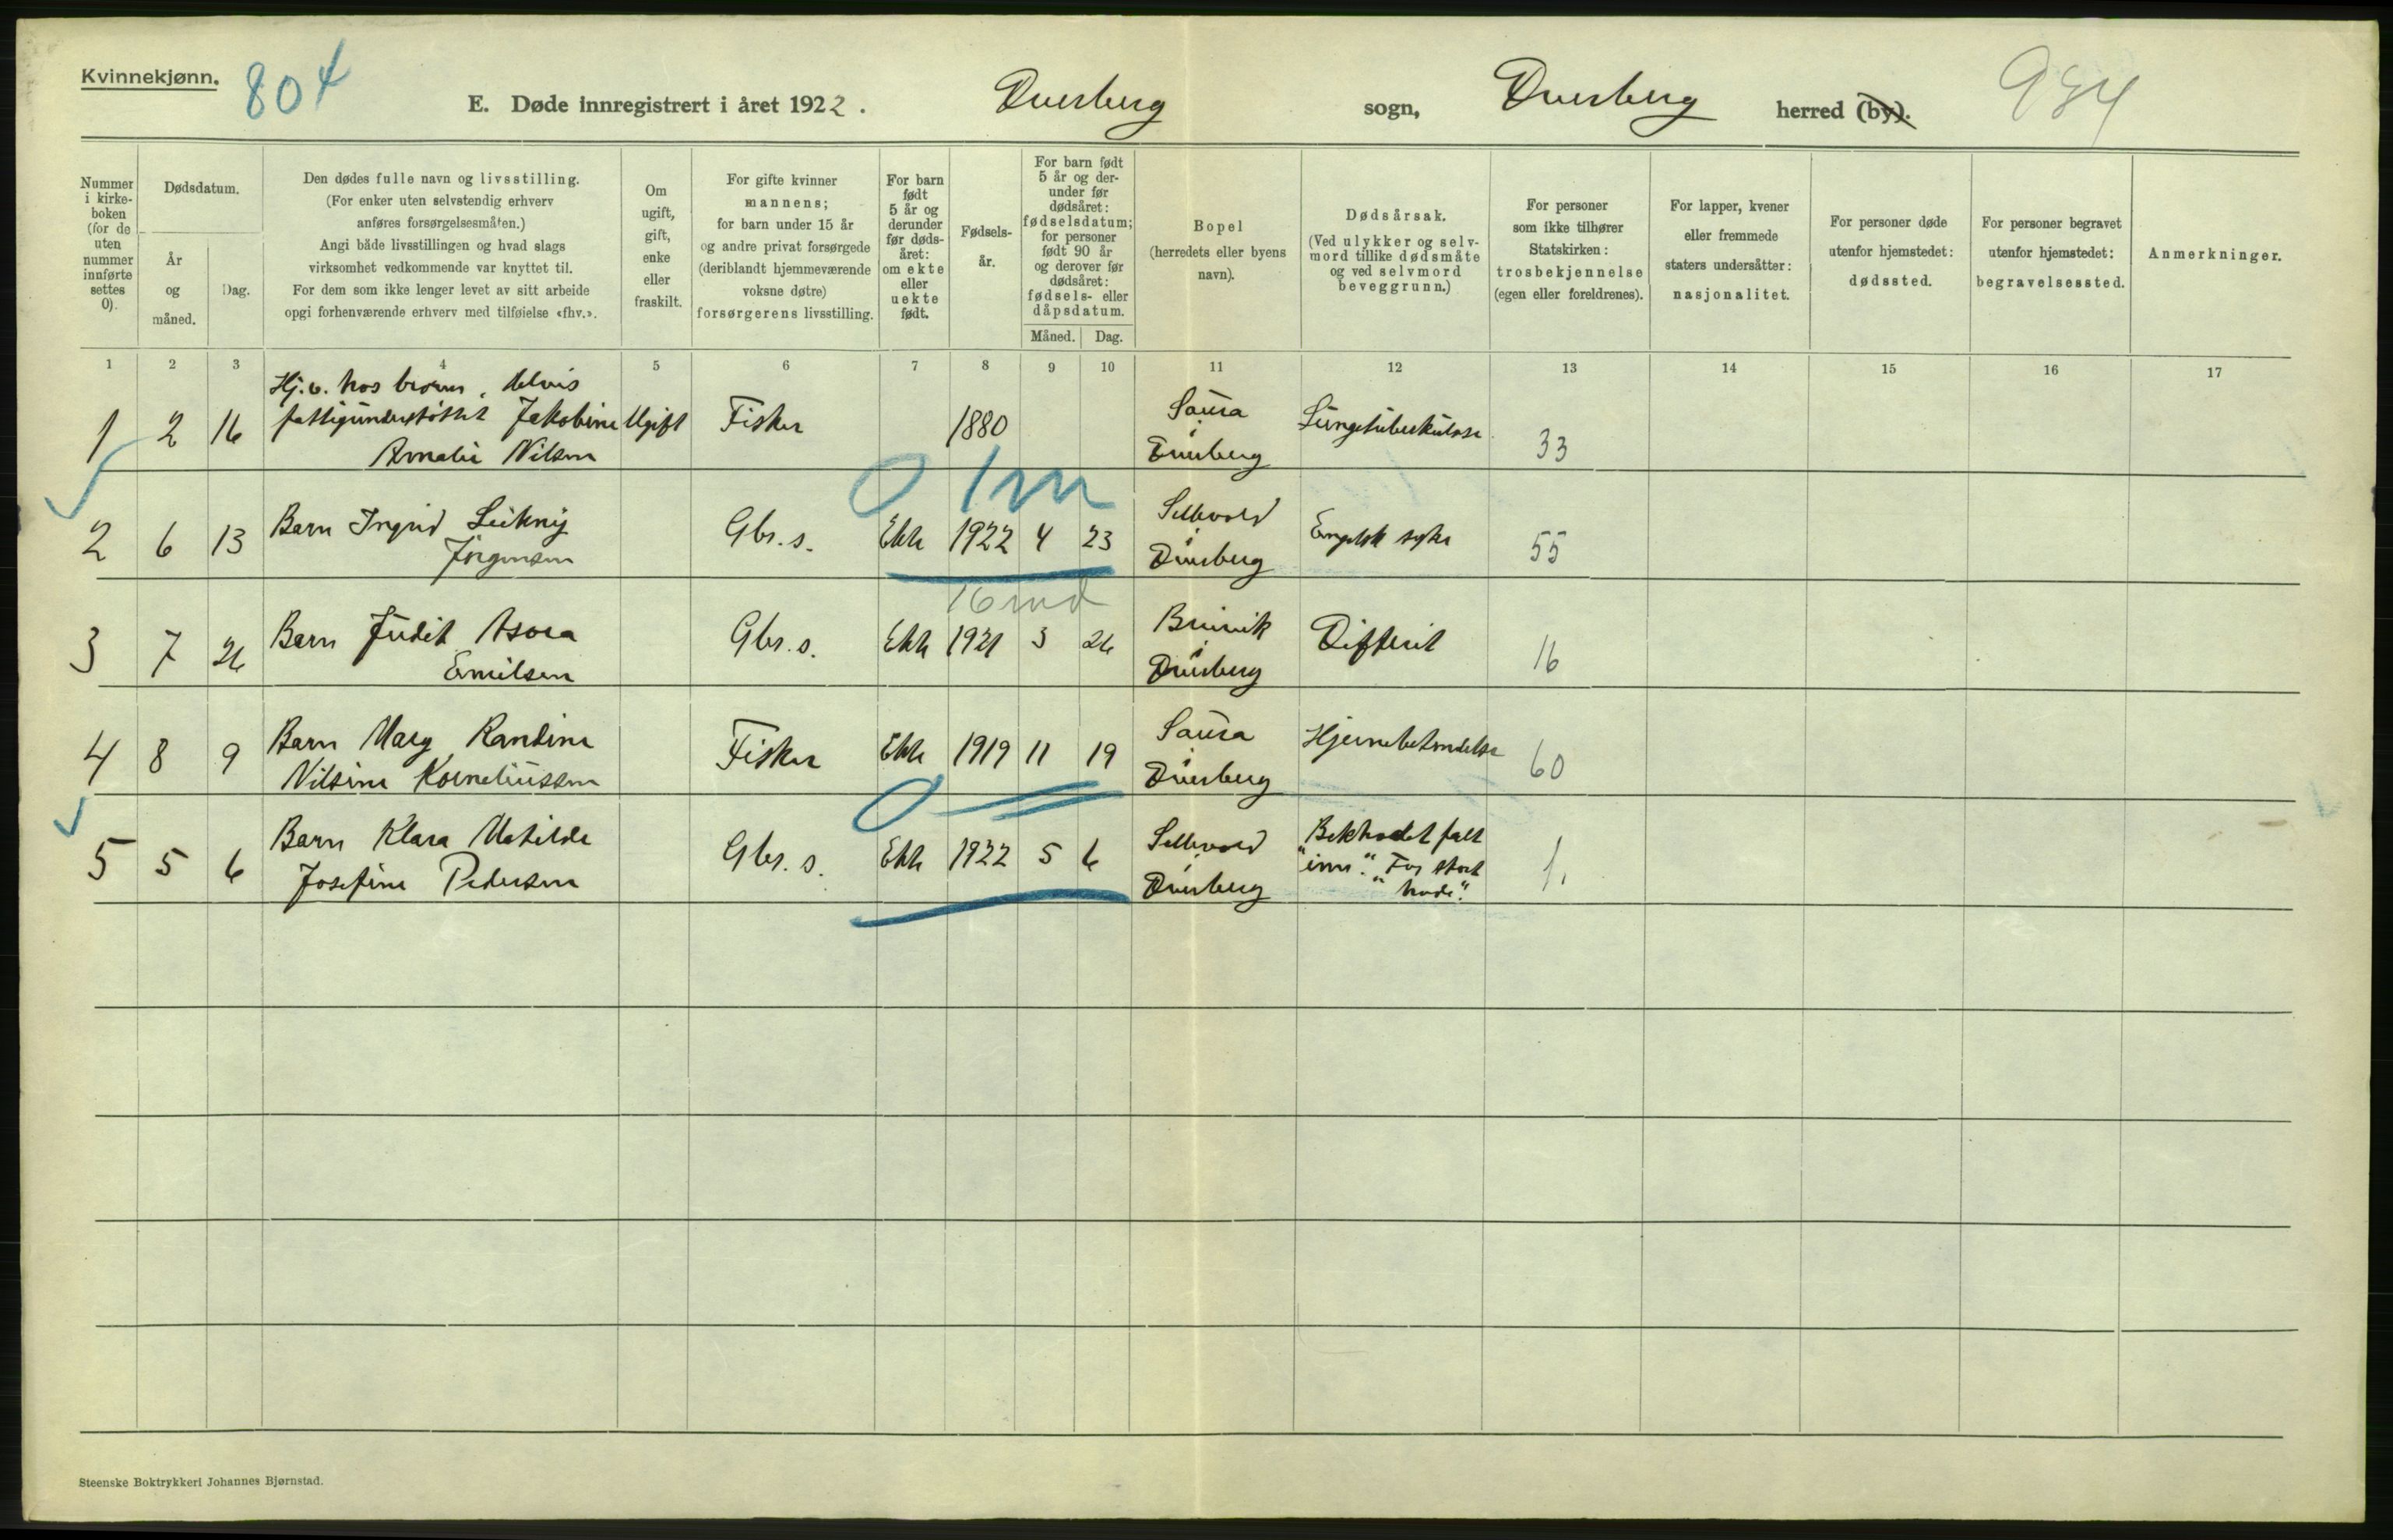 Kvinnekjønn.
804
E. Døde innregistrert i året 1922.
Dverberg sogn, Dverberg herred (by).
934
Nummer i kirke-boken (for de uten nummer innførte settes 0).
Dødsdatum.
År og måned.
Dag.
Den dødes fulle navn og livsstilling.
(For enker uten selvstendig erhverv
anføres forsørgelsesmåten.)
Angi både livsstillingen og hvad slags
virksomhet vedkommende var knyttet til.
For dem som ikke lenger levet av sitt arbeide
opgi forhenværende erhverv med tilføielse «fhv.».
Om ugift, gift, enke eller fraskilt.
For gifte kvinner
mannens;
for barn under 15 år
og andre privat forsørgede
(deriblandt hjemmeværende
voksne døtre)
forsørgerens livsstilling.
For barn født 5 år og derunder før døds-året: om ekte eller uekte født.
Fødsels-år.
For barn født 5 år og der-under før dødsåret: fødselsdatum; for personer født 90 år og derover før dødsåret: fødsels- eller dåpsdatum.
Måned. Dag.
Bopel
(herredets eller byens
navn).
Dødsårsak.
(Ved ulykker og selv-
mord tillike dødsmåte
og ved selvmord
beveggrunn.)
For personer
som ikke tilhører
Statskirken:
trosbekjennelse
(egen eller foreldrenes).
For lapper, kvener
eller fremmede
staters undersåtter:
nasjonalitet.
For personer døde
utenfor hjemstedet:
dødssted.
For personer begravet
utenfor hjemstedet:
begravelsessted.
Anmerkninger.
1 2 3 4 5 6 7 8 9 10 11 12 13 14 15 16 17
Hj. v. hos broren, delvis
1 2 16 fattigunderstøttet Jakobine Ugift Fisker 1880 Saura Lungetuberkulose 33
Amalie Nilsen i Dverberg
0 1 m
2 6 13 Barn Ingrid Leikny Gbr. s. Ekte 1922 4 23 Sellevold Engelsk syke 55
Jørgensen i Dverberg
16 md
3 7 26 Barn Judit Asora Gbr. s. Ekte 1921 3 26 Breivik Difterit 16
Emilsen i Dverberg
4 8 9 Barn Mary Randine Fisker Ekte 1919 11 19 Saura Hjernebetendelse 60
Nilsine Korneliussen i Dverberg
0
5 5 6 Barn Klara Matilde Gbr. s. Ekte 1922 5 6 Sellevold "Bakhodet falt 1.
Josefine Pedersen i Dverberg inn". "For stort
hode".
Steenske Boktrykkeri Johannes Bjørnstad.